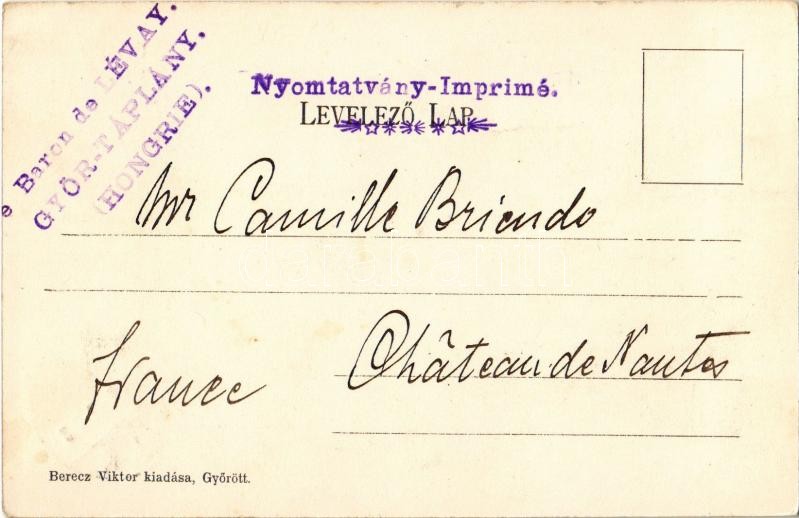 e Baron de LÉVAY.
GYŐR-TÁPLÁNY.
(HONGRIE).
Nyomtatvány-Imprimé.
LEVELEZŐ LAP
Mr Camille Briendo
Château de Nantes
France
Berecz Viktor kiadása, Győrött.